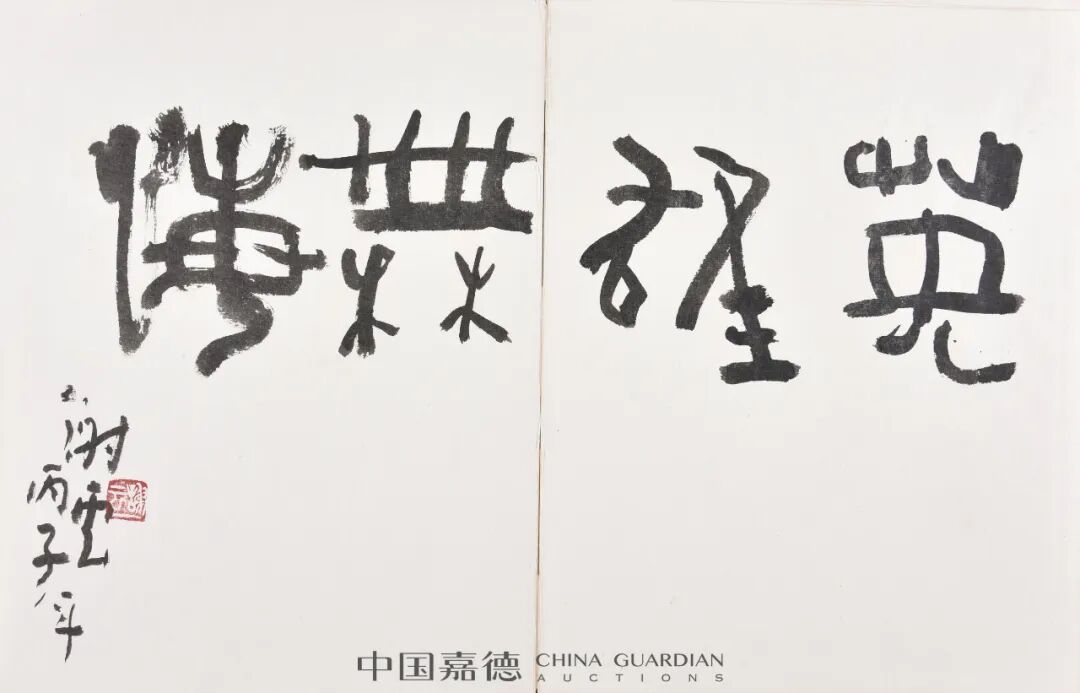 英雄無悔
謝雲
丙子年
中国嘉德 CHINA GUARDIAN
AUCTIONS